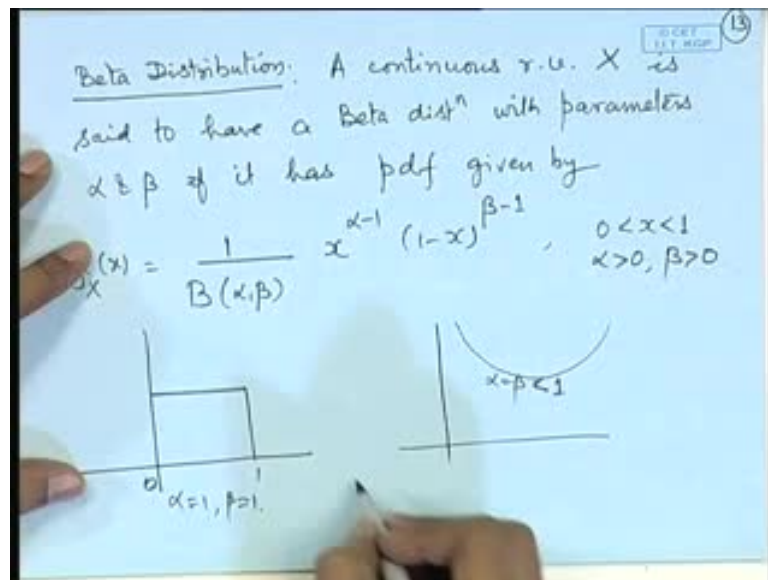 13
Beta Distribution: A continuous r.v. X is
said to have a Beta distⁿ with parameters
α & β if it has pdf given by
(x) = 1 / B(α,β) x^(α-1) (1-x)^(β-1) , 0<x<1
α>0, β>0
α=β<1
0 1
α=1, β=1.